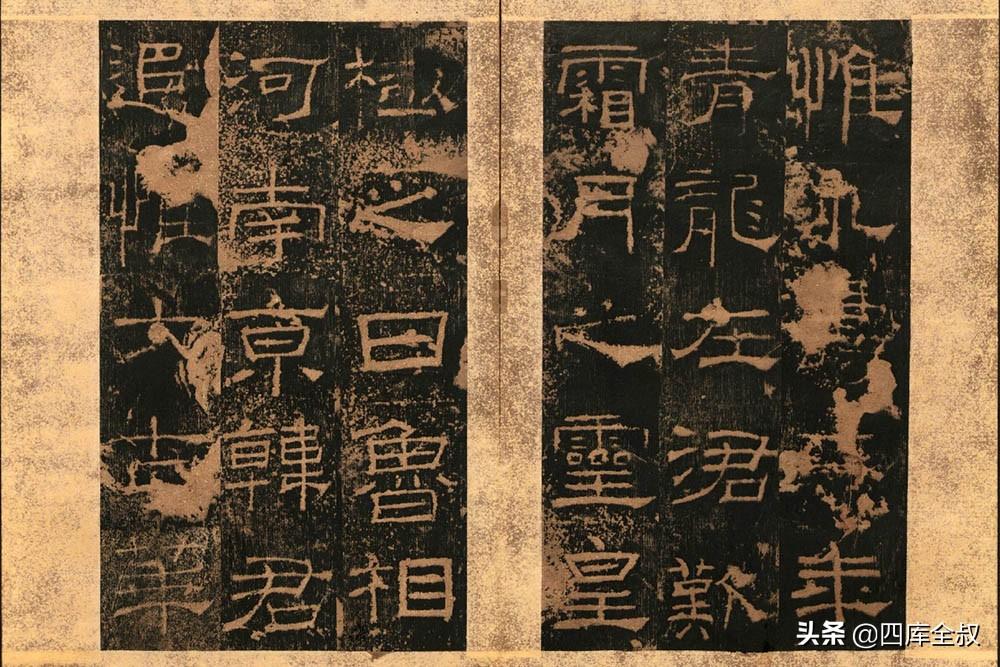 惟永壽年
青龍在涒歎
霜月之靈皇
極之日魯相
河南京韓君
追惟大古華
头条 @四库全叔